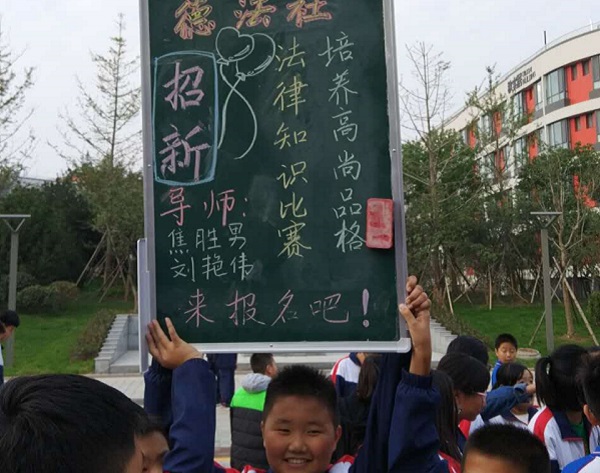 德法社
招新
培养高尚品格
法律知识比赛
导师:
焦胜男
刘艳伟
来报名吧!